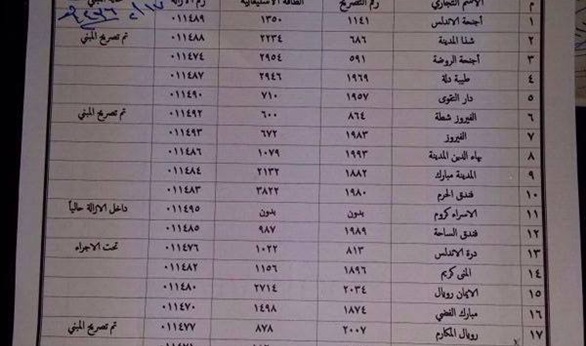 م الاسم التجاري رقم التصريح الطاقة الاستيعابية رقم الازالة
١ أجنحة الاندلس ١١٤١ ١٣٥٠ ٠١١٤٨٩
٢ شذا المدينة ٦٨٦ ٢٢٣٤ ٠١١٤٨٨ تم تصريح المبني
٣ أجنحة الروضة ٥٩١ ٢٩٥٤ ٠١١٤٧٤
٤ طيبة دلة ١٩٦٩ ٢٩٤٦ ٠١١٤٨٧
٥ دار التقوى ١٩٥٧ ٧١٠ ٠١١٤٩٠
٦ الفيروز شطة ٨٦٤ ٦٠٠ ٠١١٤٩٢ تم تصريح المبني
٧ الفيروز ١٩٨٣ ٦٧٢ ٠١١٤٩٣
٨ بهاء الدين المدينة ١٩٩٣ ١٠٧٩ ٠١١٤٨٦
٩ المدينة مبارك ١٨٨٢ ٢١٣٢ ٠١١٤٨٤
١٠ فندق الحرم ١٩٨٠ ٣٨٢٢ ٠١١٤٨٣
١١ الاسراء كروم بدون بدون ٠١١٤٩٥ داخل الازالة حالياً
١٢ فندق الساحة ١٩٨٩ ٩٨٧ ٠١١٤٨٥
١٣ درة الاندلس ٨١٣ ١٠٢٢ ٠١١٤٧٦ تحت الاجراء
١٤ المنى كريم ١٨٩٦ ١١٥٦ ٠١١٤٨٢
١٥ الايمان رويال ٢٠٣٤ ٢٧١٤ ٠١١٤٨٠
١٦ مبارك الفضي ١٨٧٤ ١٤٩٨ ٠١١٤٧٠
١٧ رويال المكارم ٢٠٠٧ ٨٧٨ ٠١١٤٧٧ تم تصريح المبني